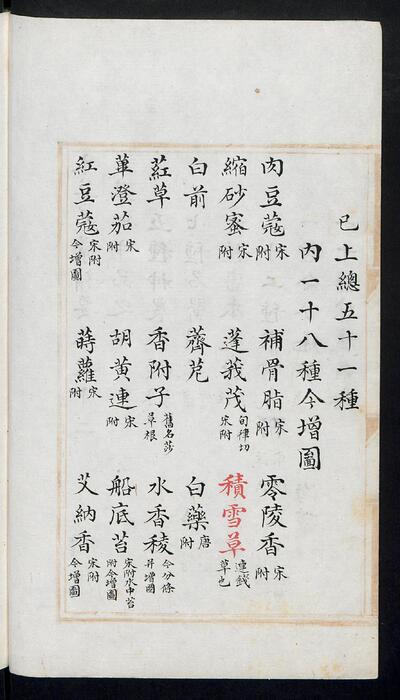 已上總五十一種
內一十八種今增圖
肉豆蔻宋附 補骨脂宋附 零陵香宋附
縮砂蜜宋附 蓬莪茂旬律切宋附 積雪草連錢草也
白前 薺苨 白藥唐附
葒草 香附子舊名莎草根 水香稜今分條并增圖
蓽澄茄宋附 胡黃連宋附 船底苔宋附水中苔附今增圖
紅豆蔻宋附今增圖 蒔蘿宋附 艾納香宋附今增圖